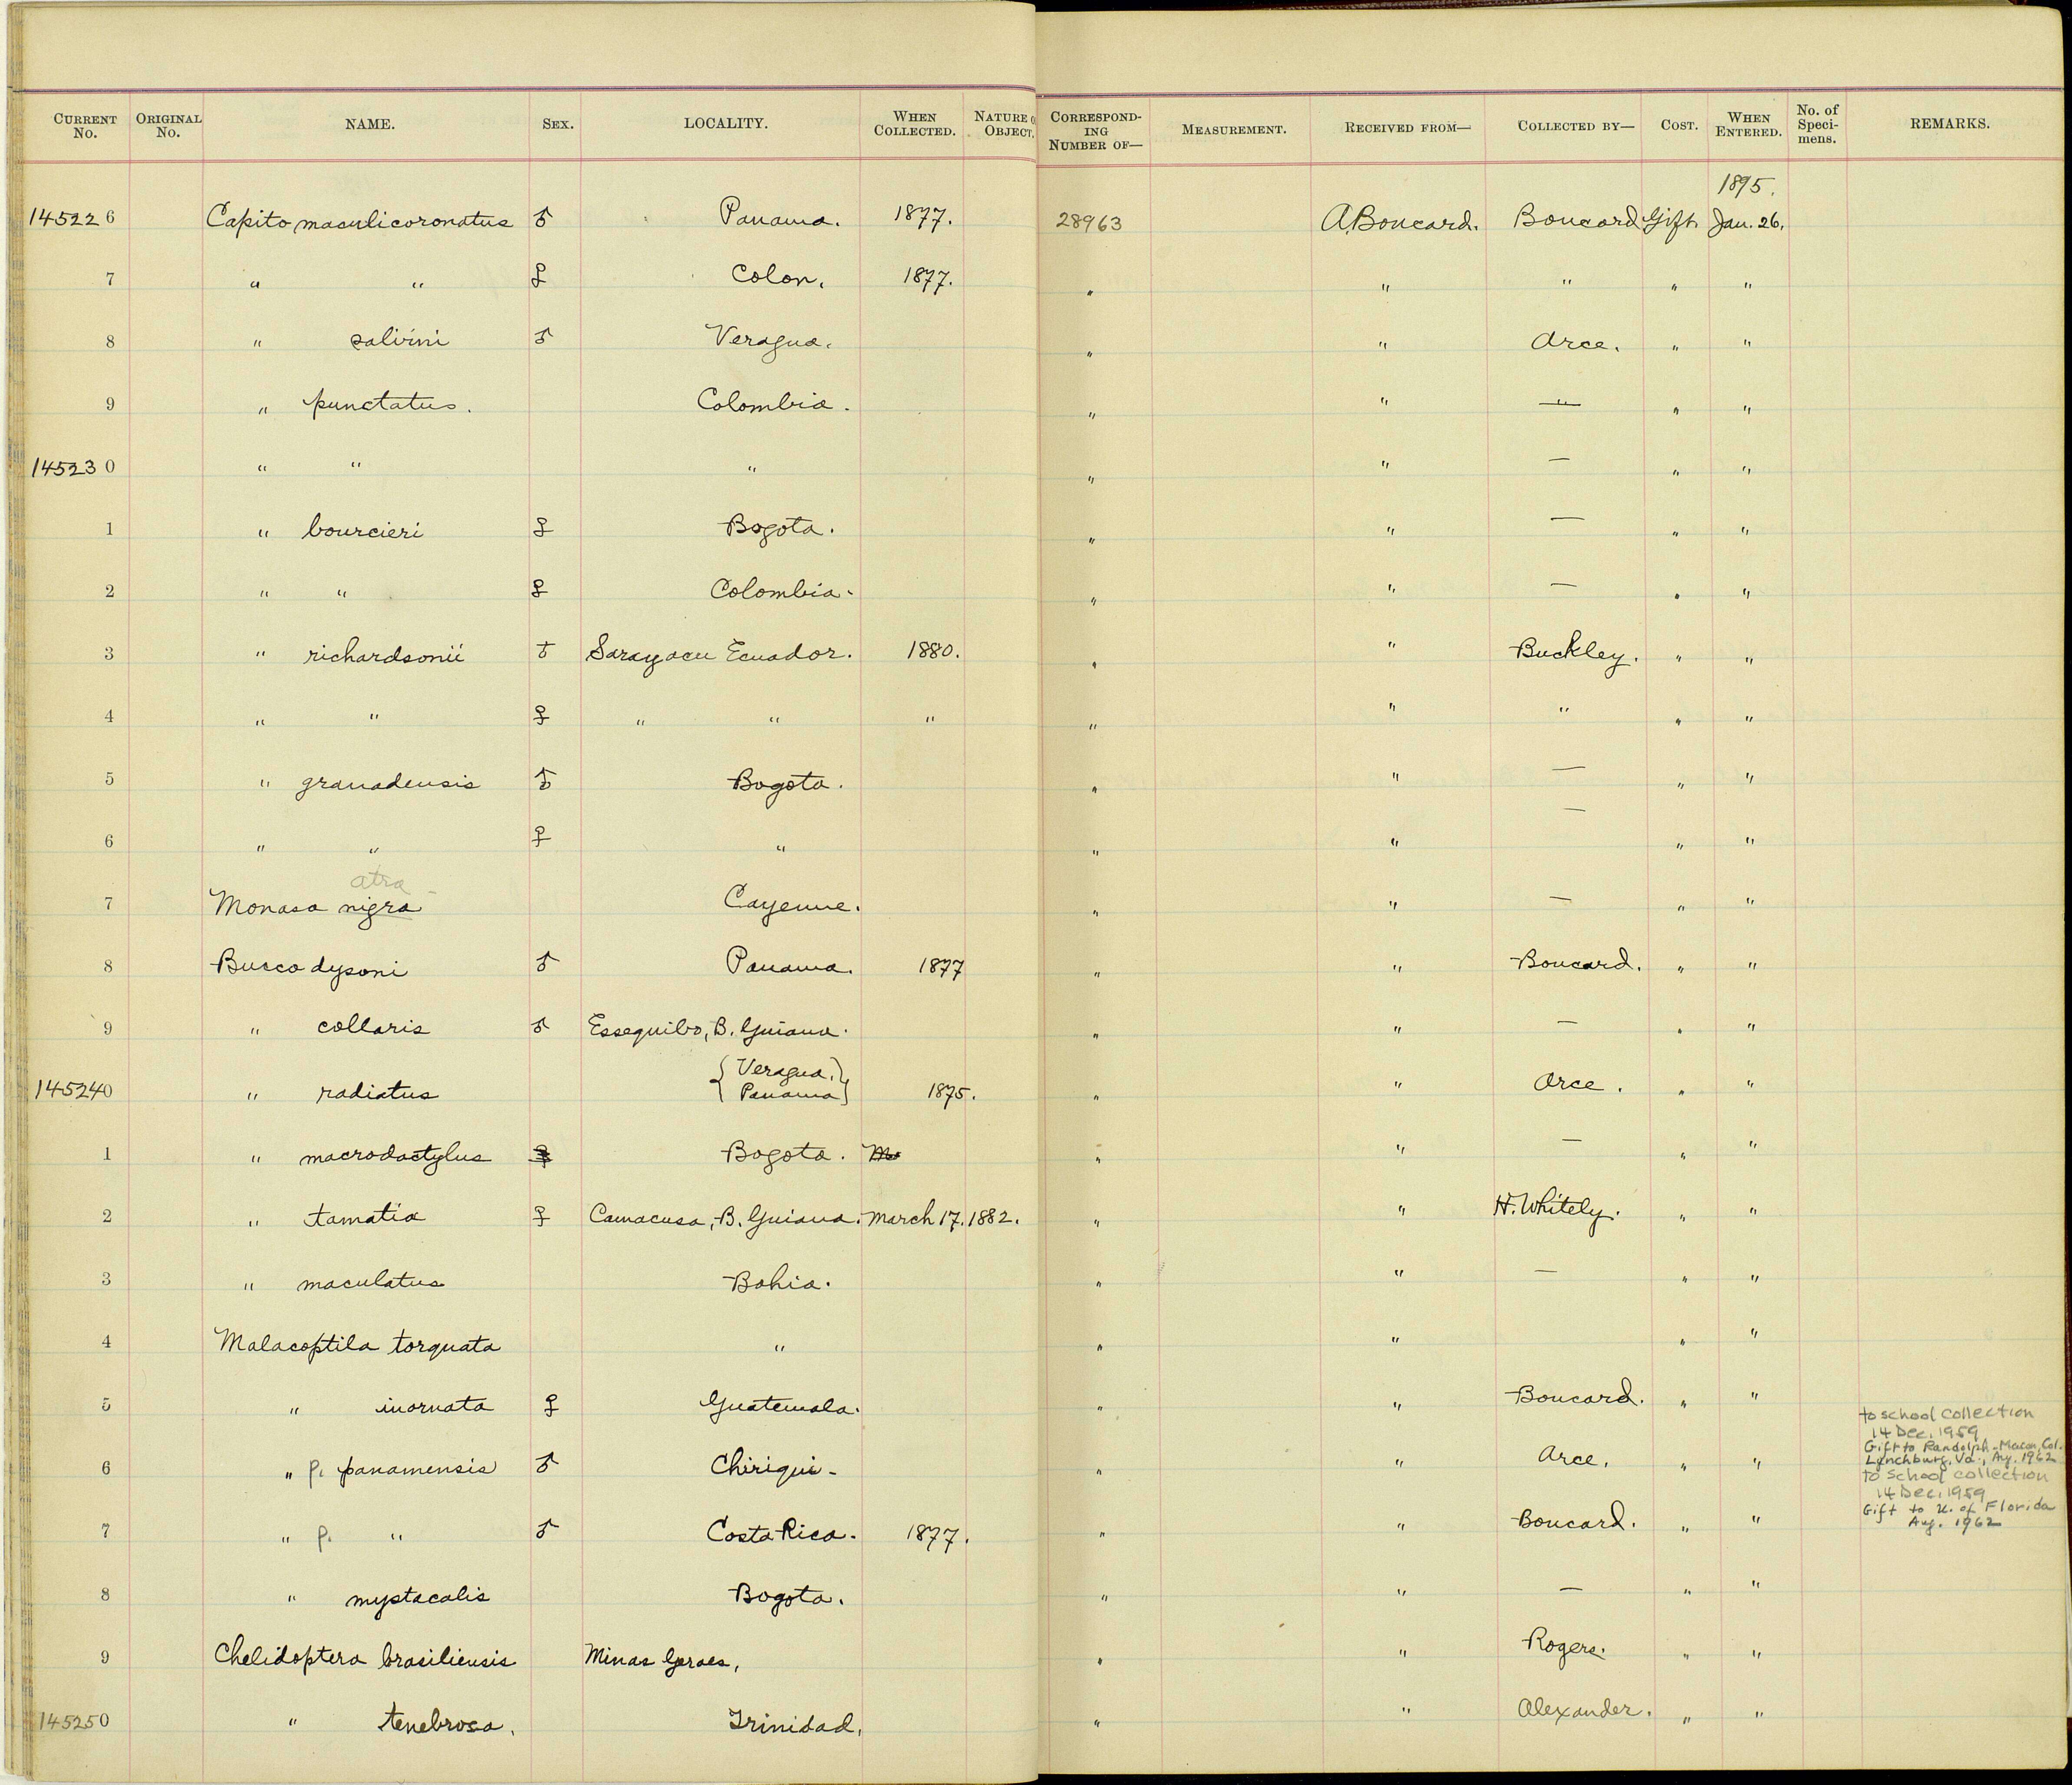 CURRENT No. ORIGINAL No. NAME. SEX. LOCALITY. WHEN COLLECTED. NATURE O OBJECT. CORRESPOND-ING NUMBER OF— MEASUREMENT. RECEIVED FROM— COLLECTED BY— COST. WHEN ENTERED. No. of Speci-mens. REMARKS.
1895.
145226 Capito maculicoronatus ♂ Panama. 1877. 28963 A. Boucard. Boucard Gift Jan. 26.
7 " " ♀ Colon. 1877. " " " " "
8 " salvini ♂ Veragua. " " Arce. " "
9 " punctatus. Colombia. " " — " "
145230 " " " " " — " "
1 " bourcieri ♀ Bogota. " " — " "
2 " " ♀ Colombia. " " — " "
3 " richardsonii ♂ Sarayacu Ecuador. 1880. " " Buckley. " "
4 " " ♀ " " " " " " " "
5 " granadensis ♂ Bogota. " " — " "
6 " " ♀ " " " — " "
atra
7 Monasa nigra Cayenne. " " — " "
8 Bucco dysoni ♂ Panama. 1877 " " Boucard. " "
9 " collaris ♂ Essequibo, B. Guiana. " " — " "
145240 " radiatus { Veragua. Panama } 1875. " " Arce. " "
1 " macrodactylus ♀ Bogota. M " " — " "
2 " tamatia ♀ Camacusa, B. Guiana. March 17. 1882. " " H. Whitely. " "
3 " maculatus Bahia. " " — " "
4 Malacoptila torquata " " " " "
5 " inornata ♀ Guatemala. " " Boucard. " "
to school collection
14 Dec. 1959
Gift to Randolph-Macon Col.
Lynchburg, Va., Aug. 1962
6 " p. panamensis ♂ Chiriqui. " " Arce. " "
to school collection
14 Dec. 1959
Gift to U. of Florida
Aug. 1962
7 " p. " ♂ Costa Rica. 1877. " " Boucard. " "
8 " mystacalis Bogota. " " — " "
9 Chelidoptera brasiliensis Minas Geraes, " " Rogers. " "
145250 " tenebrosa. Trinidad. " " Alexander. " "